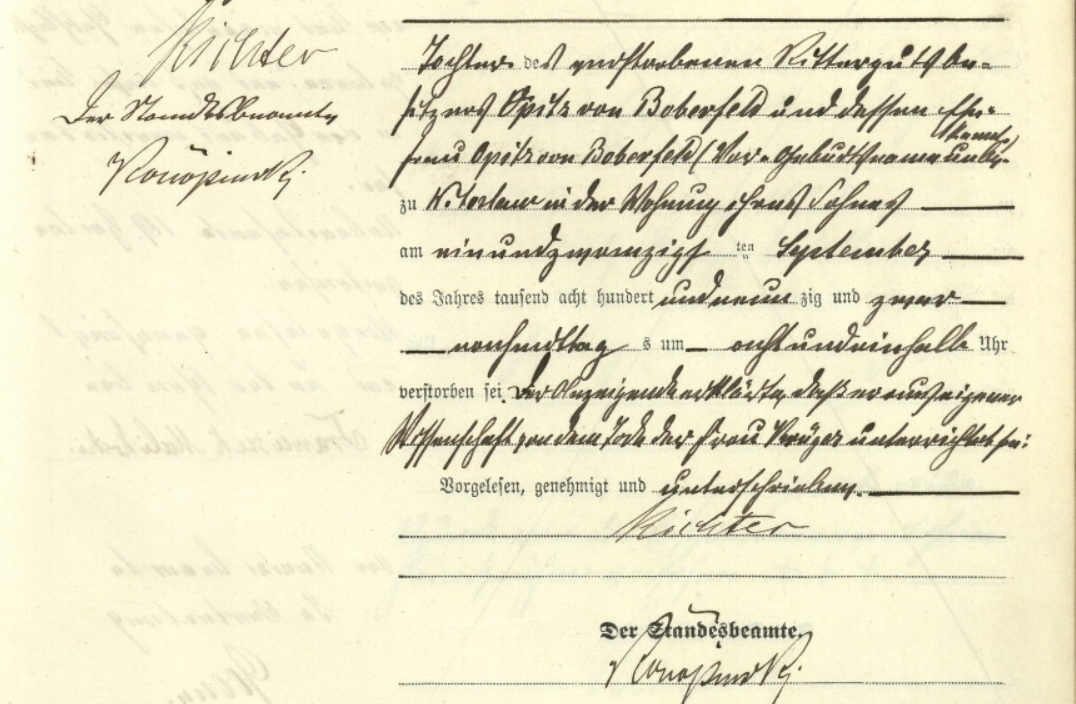 Richter
Der Standesbeamte
Konopinski.
Tochter des verstorbenen Rittergutsbe-
sitzers Opitz von Boberfeld und dessen Ehe-
frau Opitz von Boberfeld (Vor- Geburtsname unbe-
kannt)
zu in der Wohnung ihres Sohnes
am einundzwanzigs ten September
des Jahres tausend acht hundert und neun zig und zwar
nachmittag s um acht undeinhalb Uhr
verstorben sei. Der Anzeigende erklärte, daß er aus eigener
Wissenschaft von dem Tode der Frau Krüger unterrichtet sei.
Vorgelesen, genehmigt und unterschrieben.
Richter
Der Standesbeamte.
Konopinski.